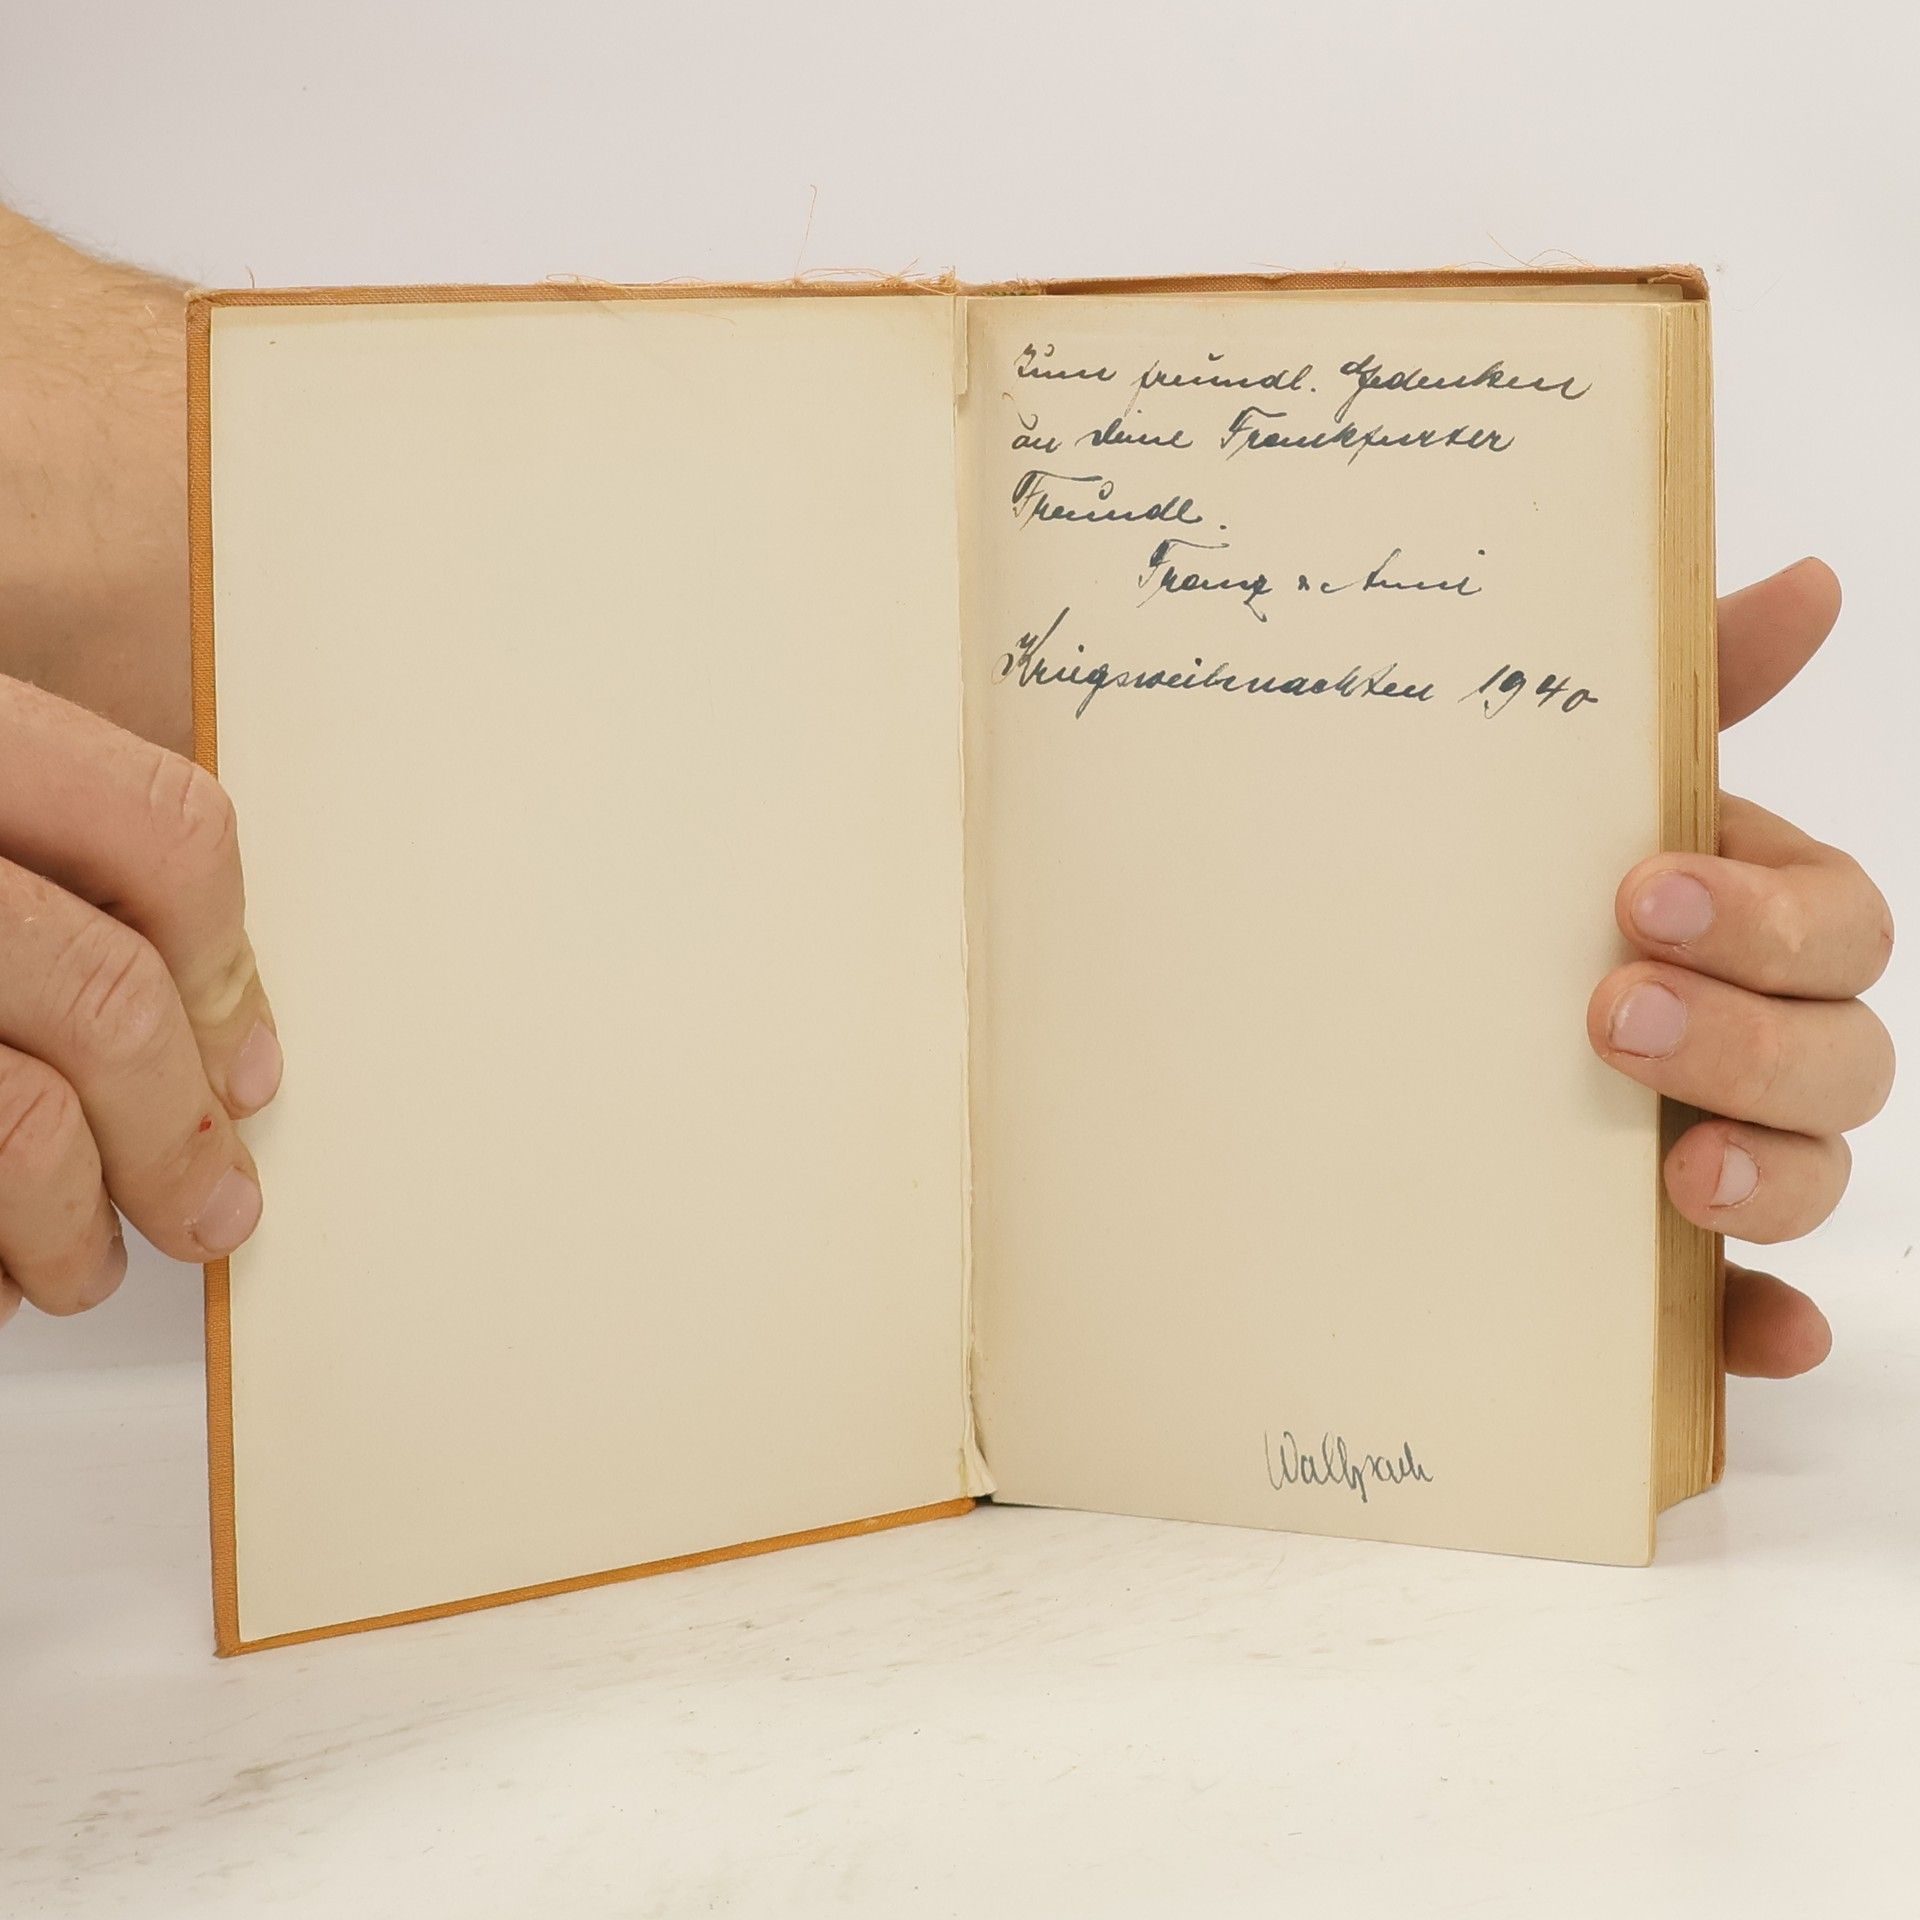 Zum freundl. Gedenken
an deine Frankfurter
Freundl.
Franz & Anni
Kriegsweihnachten 1940